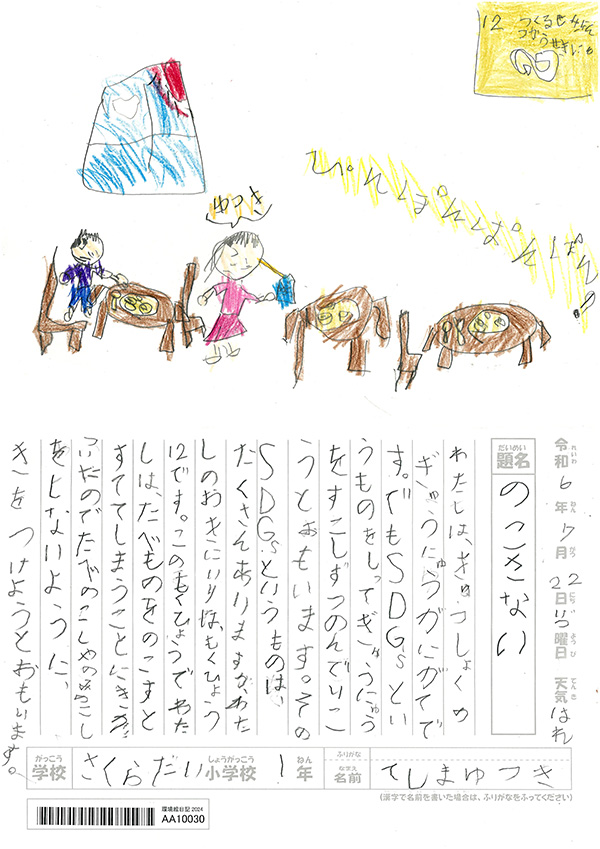 12 つくるせきにん
つかうせきにん
ぴんぽんぱんぽん!
ゆつき
令和6年7月22日月曜日 天気はれ
れいわ ねん がつ にち ようび てんき
だいめい
題名 のこさない
わたしは、きゅうしょくの
ぎゅうにゅうがにがてで
す。でもSDGsとい
うものをしってぎゅうにゅう
をすこしずつのんでいこ
うとおもいます。その
SDGsというものは、
たくさんありますが、わた
しのおきにいりは、もくひょう
12です。このもくひょうでわた
しは、たべものをのこすと
すててしまうことにきが
ついたのでたべのこしやのみのこし
をしないように、
きをつけようとおもいます。
がっこう しょうがっこう ねん ふりがな
学校 さくらだい小学校 1年 なまえ 名前 てしまゆつき
(漢字で名前を書いた場合は、ふりがなをふってください)
環境絵日記2024
AA10030